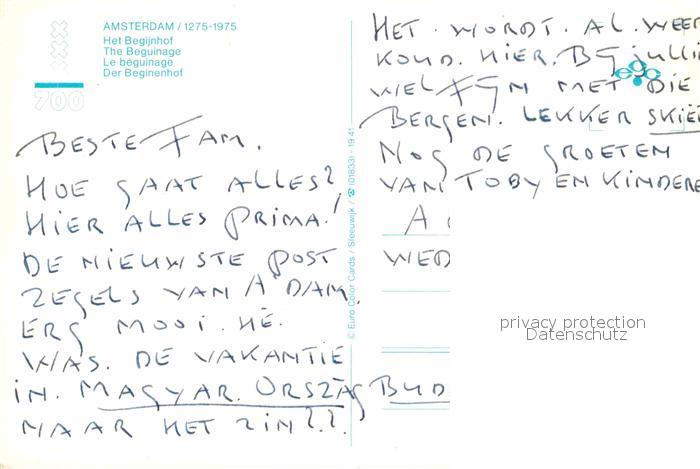 AMSTERDAM / 1275-1975
Het Begijnhof
The Beguinage
Le béguinage
Der Beginenhof
700
BESTE FAM.
HOE GAAT ALLES?
HIER ALLES PRIMA!
DE NIEUWSTE POST
ZEGELS VAN A'DAM.
ERG MOOI. HÈ.
WAS. DE VAKANTIE
IN. MAGYAR. ORSZÀG BUD
NAAR HET ZIN??.
© Euro Color Cards / Sleeuwijk / ☎ (01833) - 19 41
HET. WORDT. AL. WEER
KOUD. HIER. BIJ JULLI
WEL FIJN MET DIE
BERGEN. LEKKER SKIËE
NOG DE GROETEN
VAN TOBY EN KINDERE
A
WED
ego
privacy protection
Datenschutz